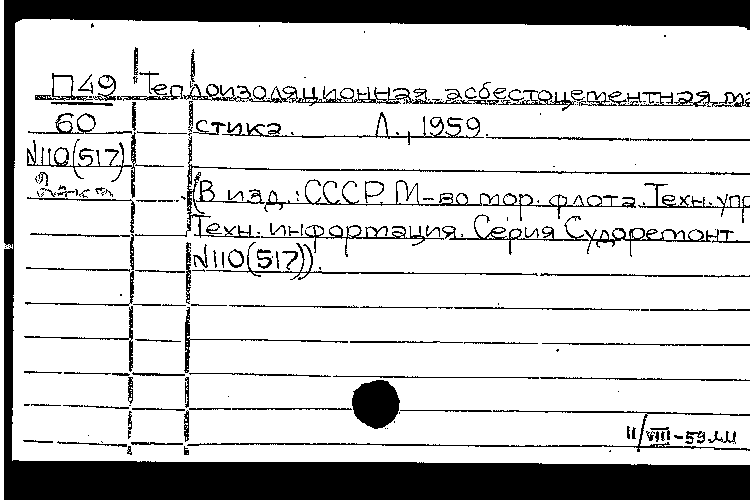 П49 Теплоизоляционная асбестоцементная ма
60 стика. Л., 1959.
N110(517)
(В изд.: СССР. М-во мор. флота. Техн. упр
Техн. информация. Серия Судоремонт
N110(517)).
11/VIII-59